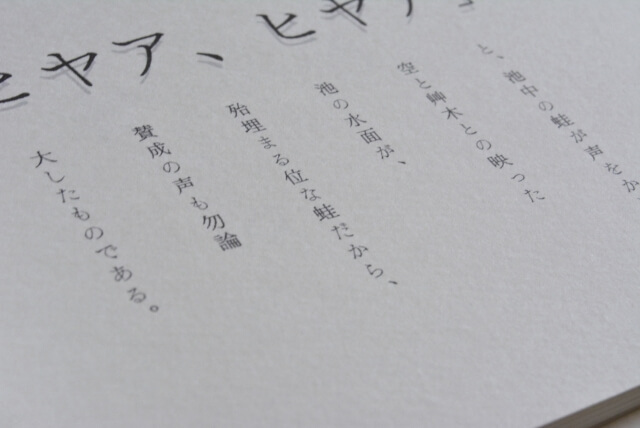 ヒヤア、ヒヤア
と、池中の蛙が声をか
空と艸木との映った
池の水面が、
殆埋まる位な蛙だから、
賛成の声も勿論
大したものである。